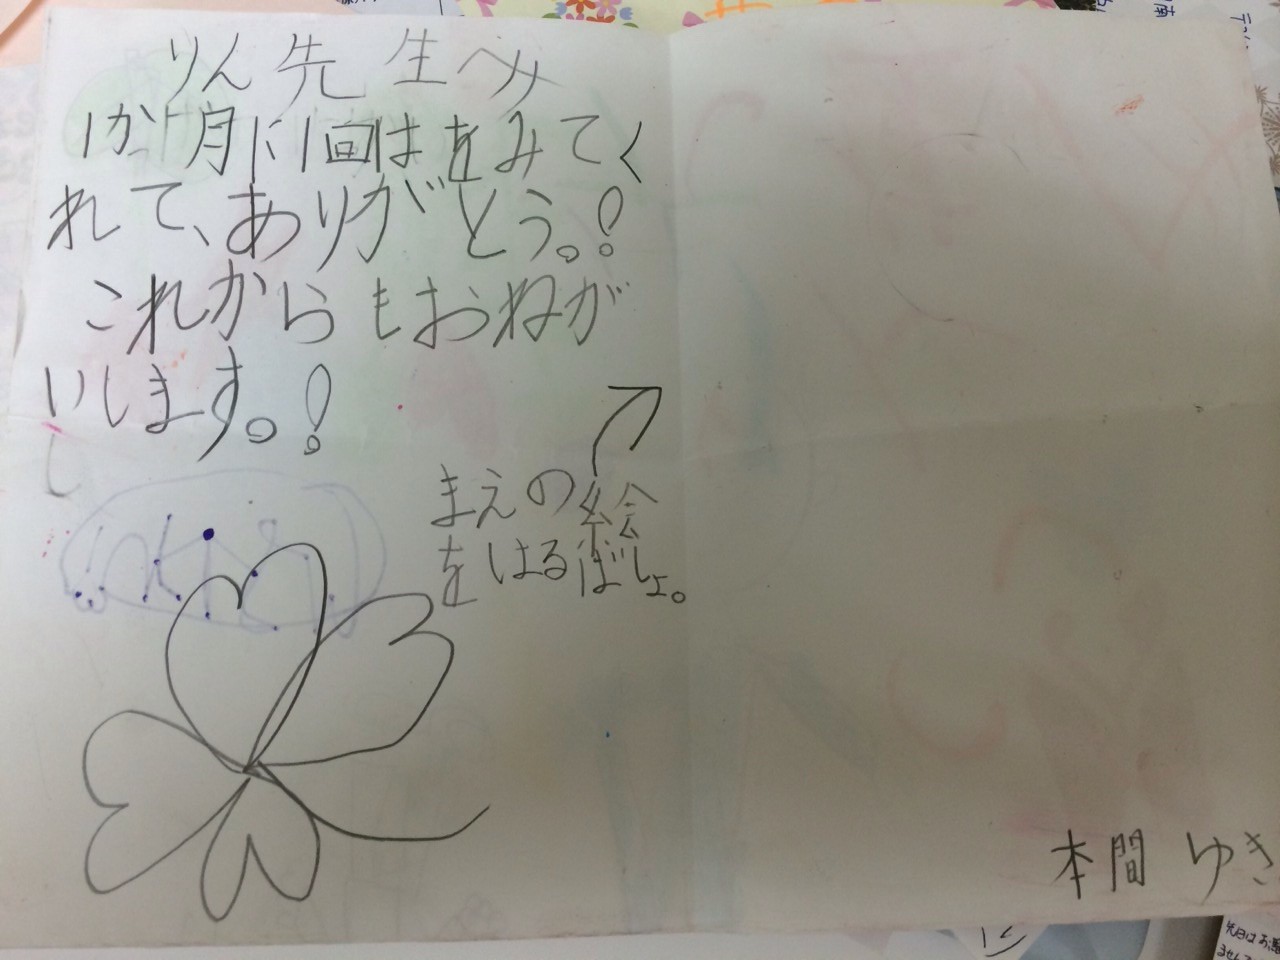 りん先生へ
1か月に1回はをみてく
れて、ありがとう。!
これからもおねが
いします。!
まえの絵
をはるばしょ。
本間 ゆき